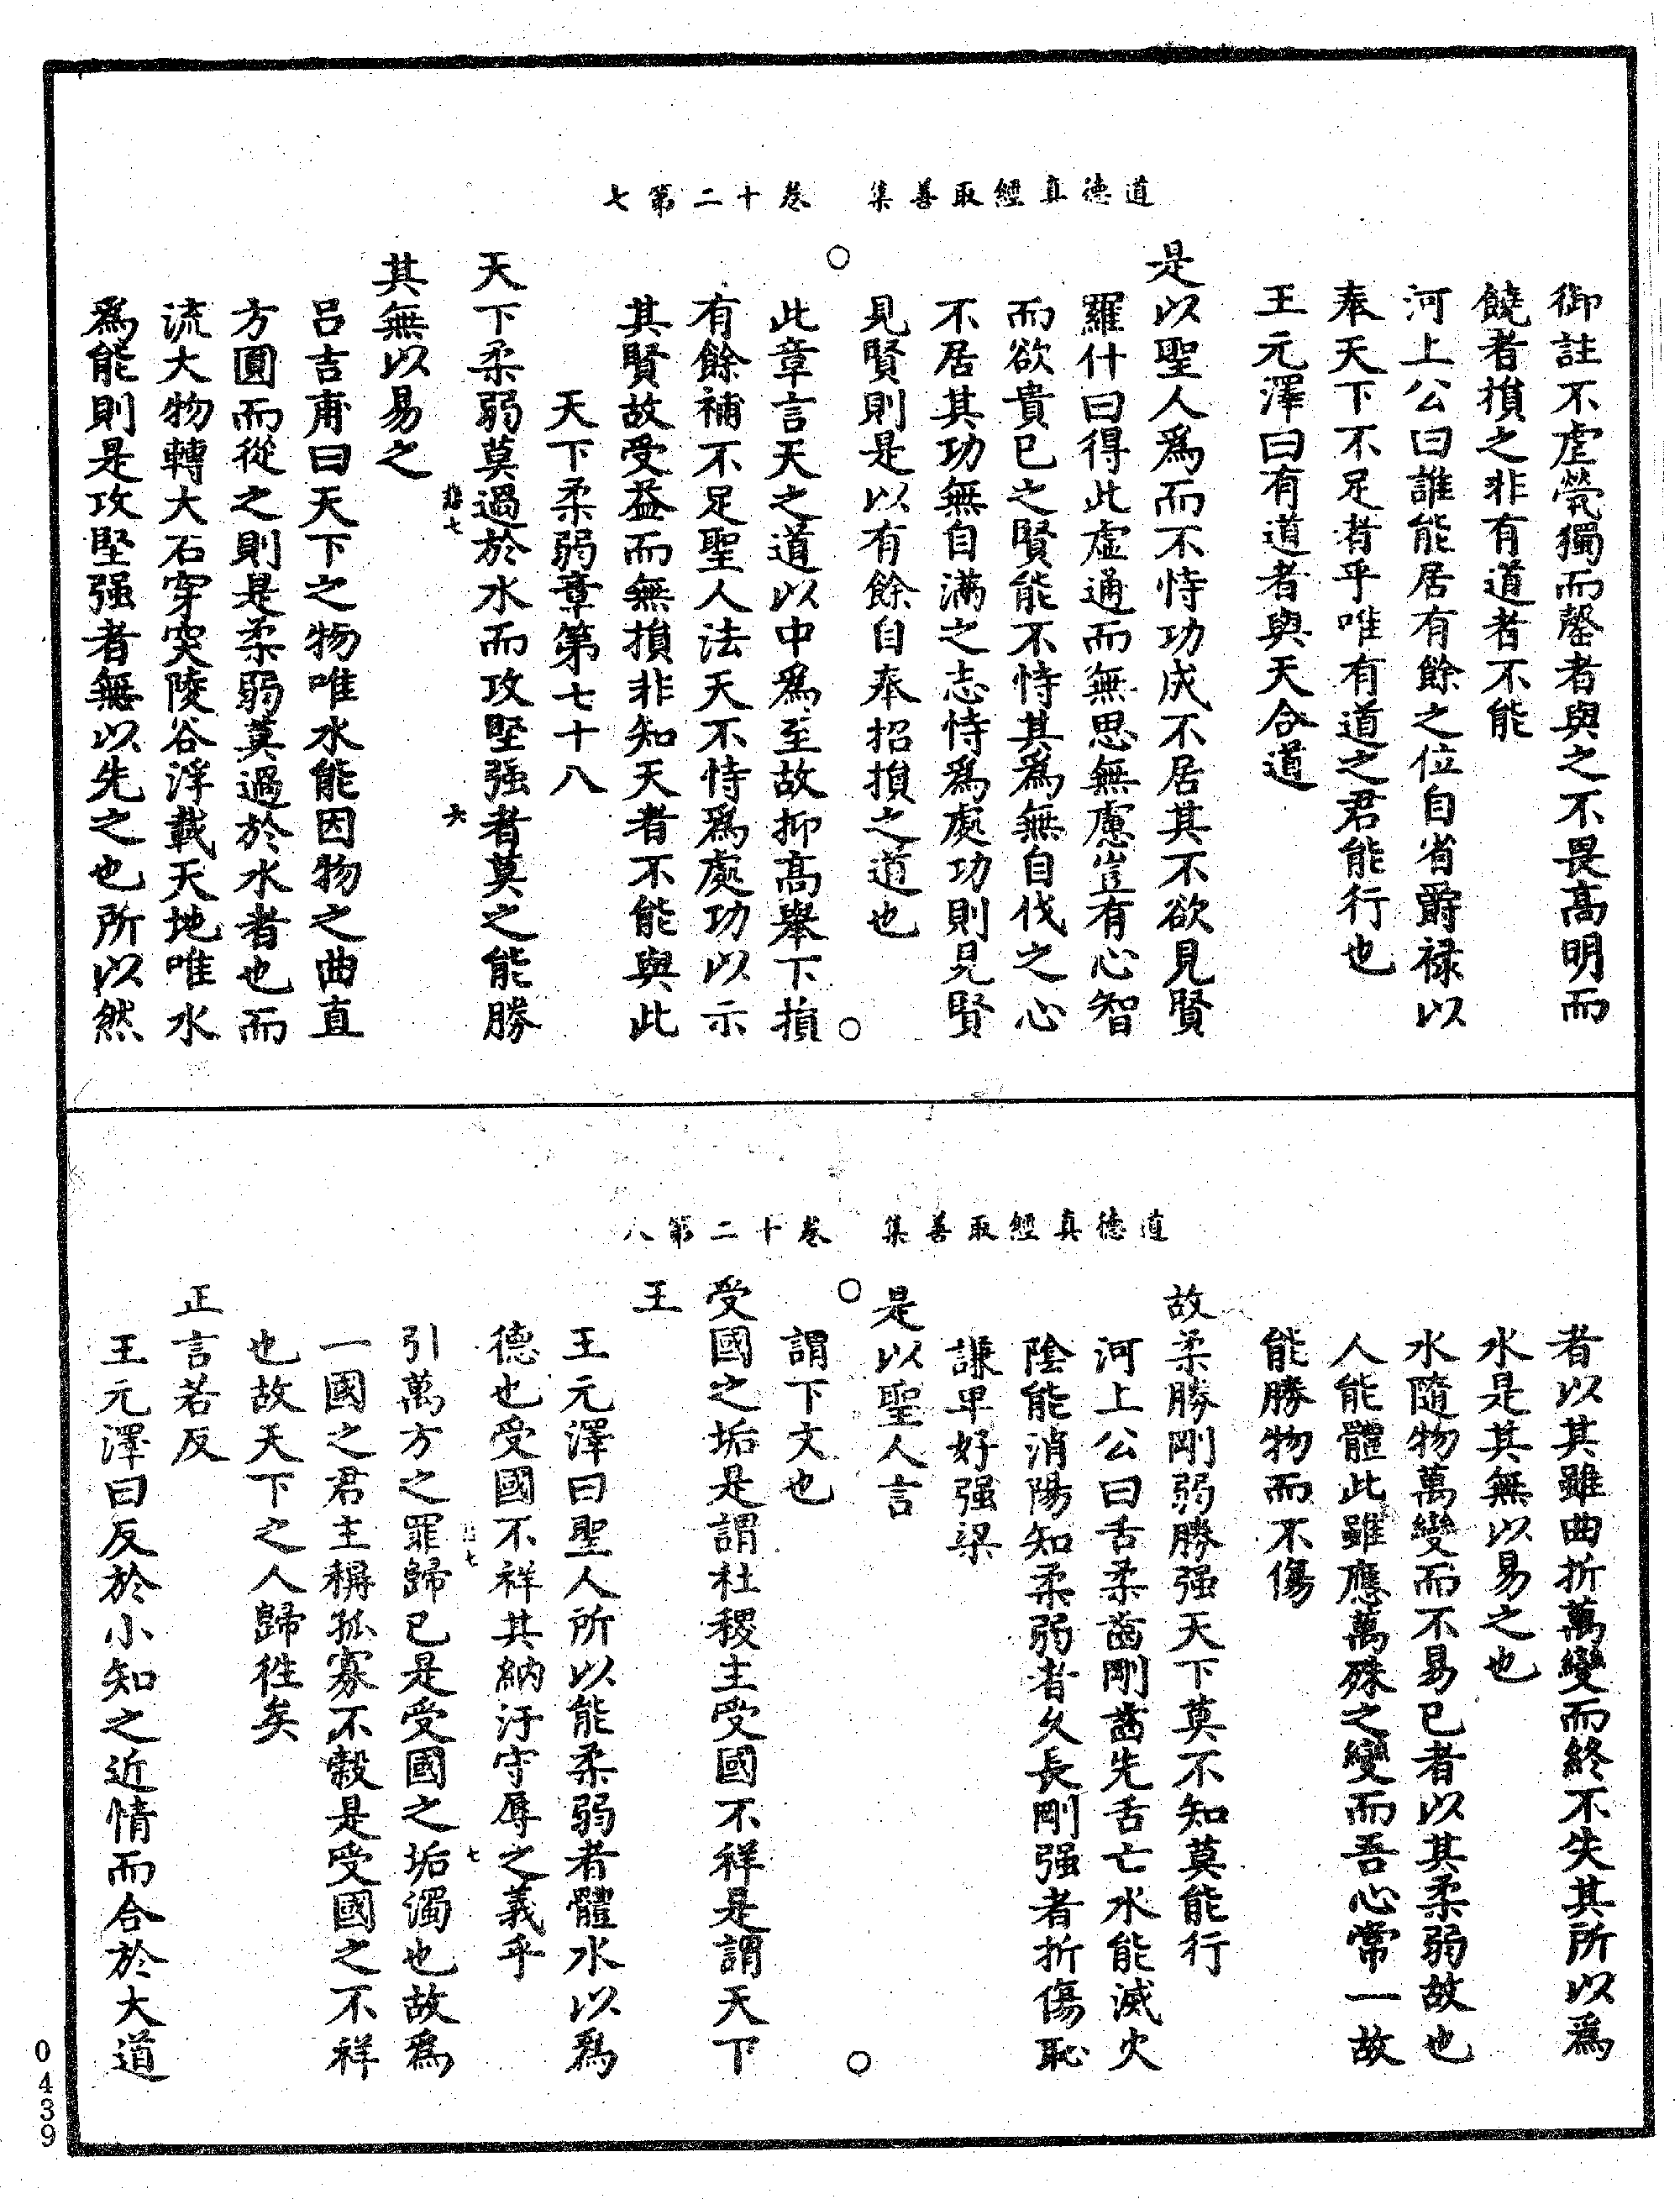 道德真經取善集　卷十二第七
御註不虐煢獨而罄者與之不畏高明而
饒者損之非有道者不能
河上公曰誰能居有餘之位自省爵禄以
奉天下不足者乎唯有道之君能行也
王元澤曰有道者與天合道
是以聖人爲而不恃功成不居其不欲見賢
羅什曰得此虛通而無思無慮豈有心智
而欲貴已之賢能不恃其爲無自伐之心
不居其功無自滿之志恃爲處功則見賢
見賢則是以有餘自奉招損之道也
此章言天之道以中爲至故抑高舉下損
有餘補不足聖人法天不恃爲處功以示
其賢故受益而無損非知天者不能與此
天下柔弱章第七十八
天下柔弱莫過於水而攻堅强者莫之能勝
七　六
其無以易之
吕吉甫曰天下之物唯水能因物之曲直
方圓而從之則是柔弱莫過於水者也而
流大物轉大石穿突陵谷浮載天地唯水
爲能則是攻堅强者無以先之也所以然
道德真經取善集　卷十二第八
者以其雖曲折萬變而終不失其所以爲
水是其無以易之也
水隨物萬變而不易已者以其柔弱故也
人能體此雖應萬殊之變而吾心常一故
能勝物而不傷
故柔勝剛弱勝强天下莫不知莫能行
河上公曰舌柔齒剛齒先舌亡水能滅火
陰能消陽知柔弱者久長剛强者折傷恥
謙卑好强梁
是以聖人言
謂下文也
受國之垢是謂社稷主受國不祥是謂天下
王
王元澤曰聖人所以能柔弱者體水以爲
德也受國不祥其納汙守辱之義乎
七　七
引萬方之罪歸已是受國之垢濁也故爲
一國之君主稱孤寡不穀是受國之不祥
也故天下之人歸往矣
正言若反
王元澤曰反於小知之近情而合於大道
0439